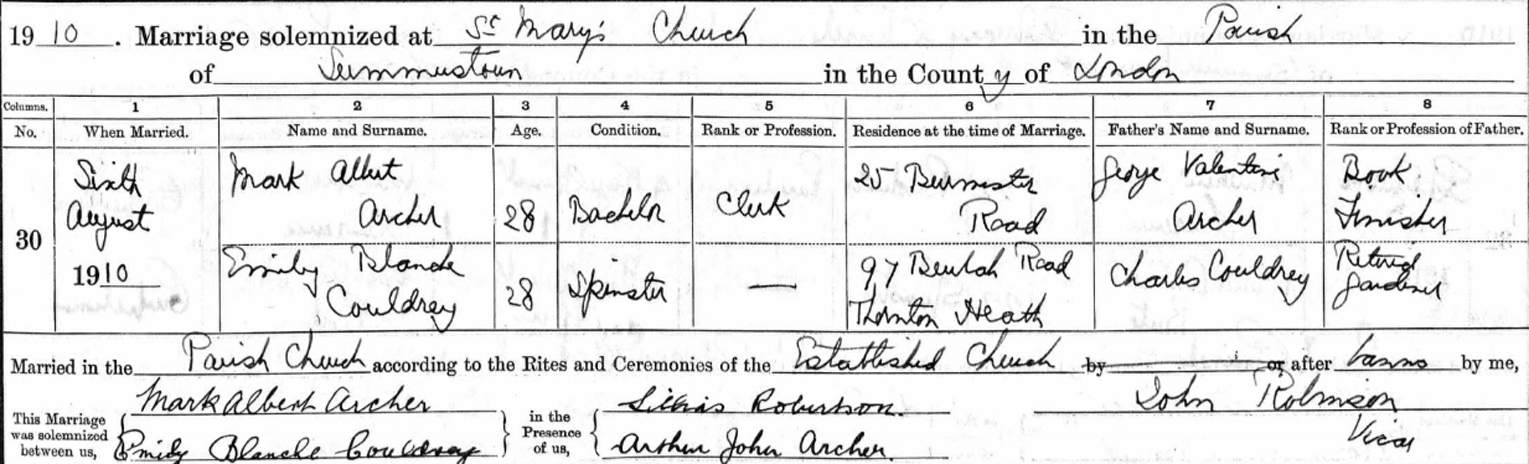 1910. Marriage solemnized at St Mary's Church in the Parish
of Summerstown in the County of London
Columns. 1 2 3 4 5 6 7 8
No. When Married. Name and Surname. Age. Condition. Rank or Profession. Residence at the time of Marriage. Father's Name and Surname. Rank or Profession of Father.
Sixth Mark Albert 25 Burmester George Valentine Book
August Archer 28 Bachelor Clerk Road Archer Finisher
30
1910 Emily Blanche 97 Beulah Road Charles Couldrey Retired
Couldrey 28 Spinster — Thornton Heath Gardener
Married in the Parish Church according to the Rites and Ceremonies of the Established Church by or after banns by me,
This Marriage was solemnized between us, Mark Albert Archer in the Presence of us, Robertson John Robinson
Emily Blanche Couldrey Arthur John Archer Vicar